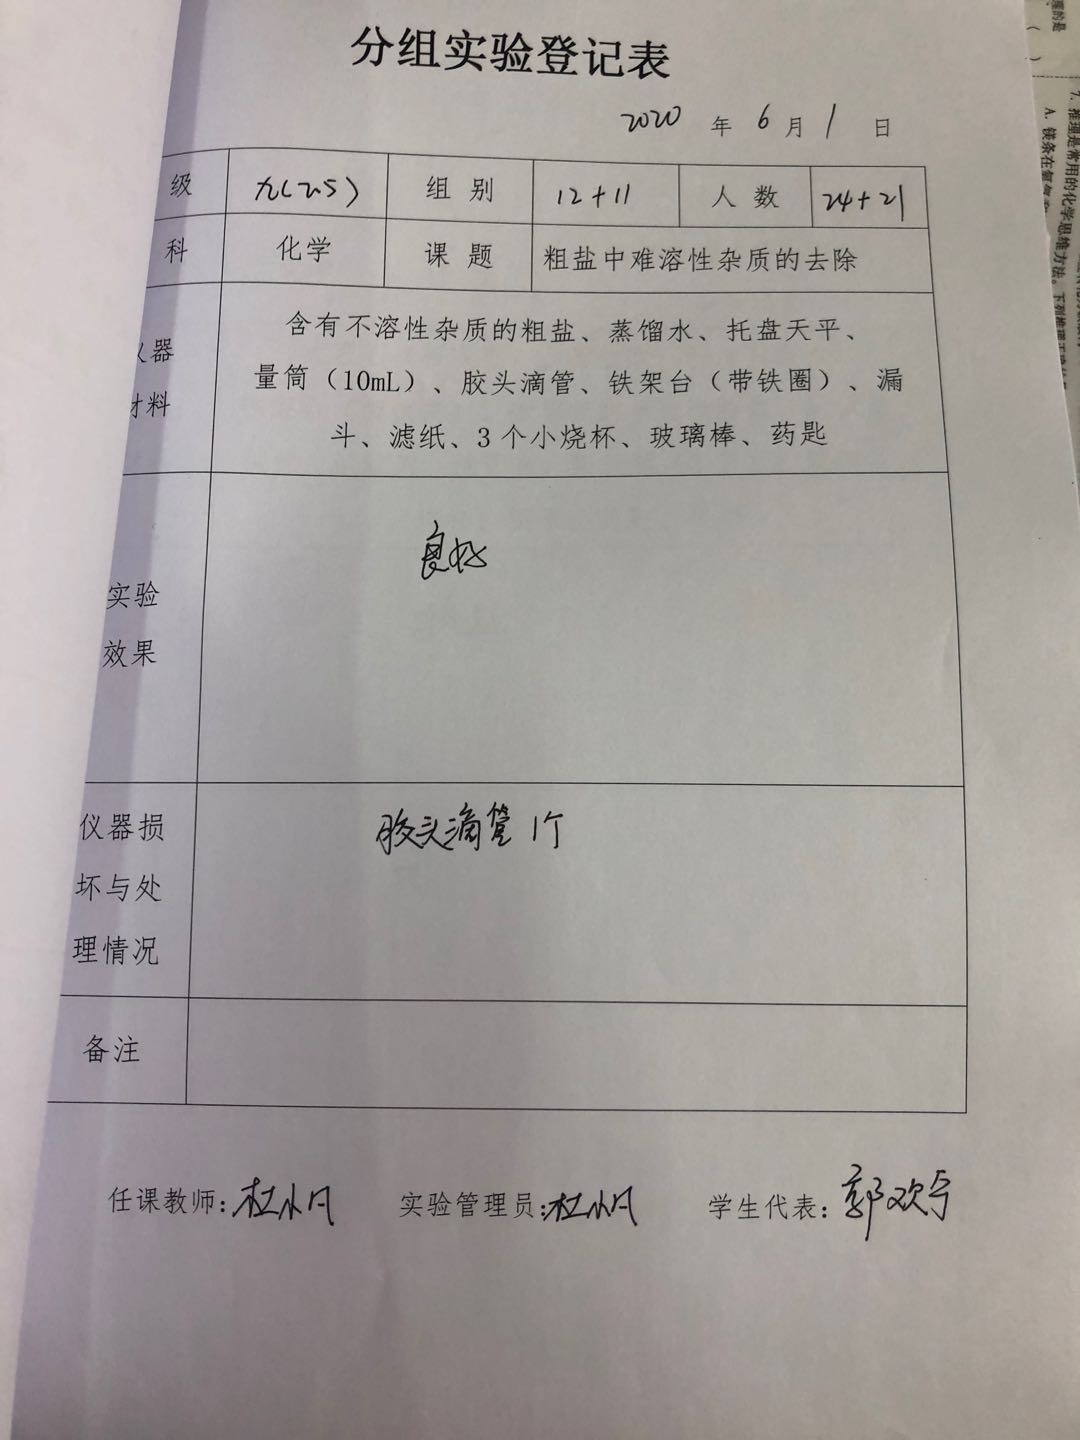 分组实验登记表
2020 年 6 月 1 日
级 九(2.5) 组别 12+11 人数 24+21
科 化学 课题 粗盐中难溶性杂质的去除
仪器
材料
含有不溶性杂质的粗盐、蒸馏水、托盘天平、
量筒（10mL）、胶头滴管、铁架台（带铁圈）、漏
斗、滤纸、3个小烧杯、玻璃棒、药匙
实验
效果
良好
仪器损
坏与处
理情况
胶头滴管 1个
备注
任课教师：杜小凡 实验管理员：杜小凡 学生代表：郭欢
7. 推理是常用的化学思维方法。下列推理正确的是
A. 镁条在氧气